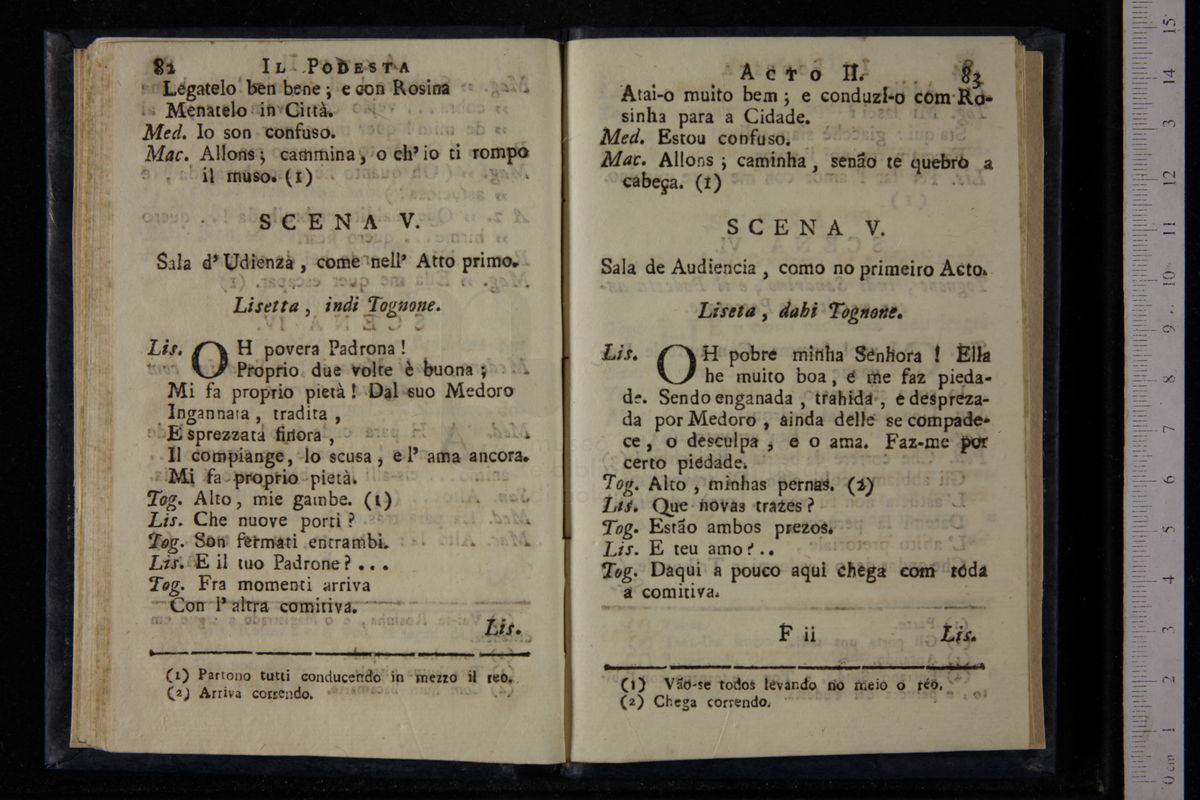 82 IL PODESTA
Legatelo ben bene; e con Rosina
Menatelo in Città.
Med. Io son confuso.
Mac. Allons; cammina, o ch' io ti rompo
il muso. (1)
SCENA V.
Sala d' Udienza, come nell' Atto primo.
Lisetta, indi Tognone.
Lis. OH povera Padrona!
Proprio due volte è buona;
Mi fa proprio pietà! Dal suo Medoro
Ingannata, tradita,
E sprezzata finora,
Il compiange, lo scusa, e l' ama ancora.
Mi fa proprio pietà.
Tog. Alto, mie gambe. (1)
Lis. Che nuove porti?
Tog. Son fermati entrambi.
Lis. E il tuo Padrone?...
Tog. Fra momenti arriva
Con l' altra comitiva.
Lis.
(1) Partono tutti conducendo in mezzo il reo.
(2) Arriva correndo.
ACTO II. 83
Atai-o muito bem; e conduzí-o com Ro-
sinha para a Cidade.
Med. Estou confuso.
Mac. Allons; caminha, senão te quebro a
cabeça. (1)
SCENA V.
Sala de Audiencia, como no primeiro Acto.
Liseta, dahi Tognone.
Lis. OH pobre minha Senhora! Ella
he muito boa, e me faz pieda-
de. Sendo enganada, trahida, e despreza-
da por Medoro, ainda delle se compade-
ce, o desculpa, e o ama. Faz-me por
certo piedade.
Tog. Alto, minhas pernas. (2)
Lis. Que novas trazes?
Tog. Estão ambos prezos.
Lis. E teu amo?..
Tog. Daqui a pouco aqui chega com tóda
a comitiva.
F ii Lis.
(1) Vão-se todos levando no meio o réo.
(2) Chega correndo.
0 cm 1 2 3 4 5 6 7 8 9 10 11 12 13 14 15